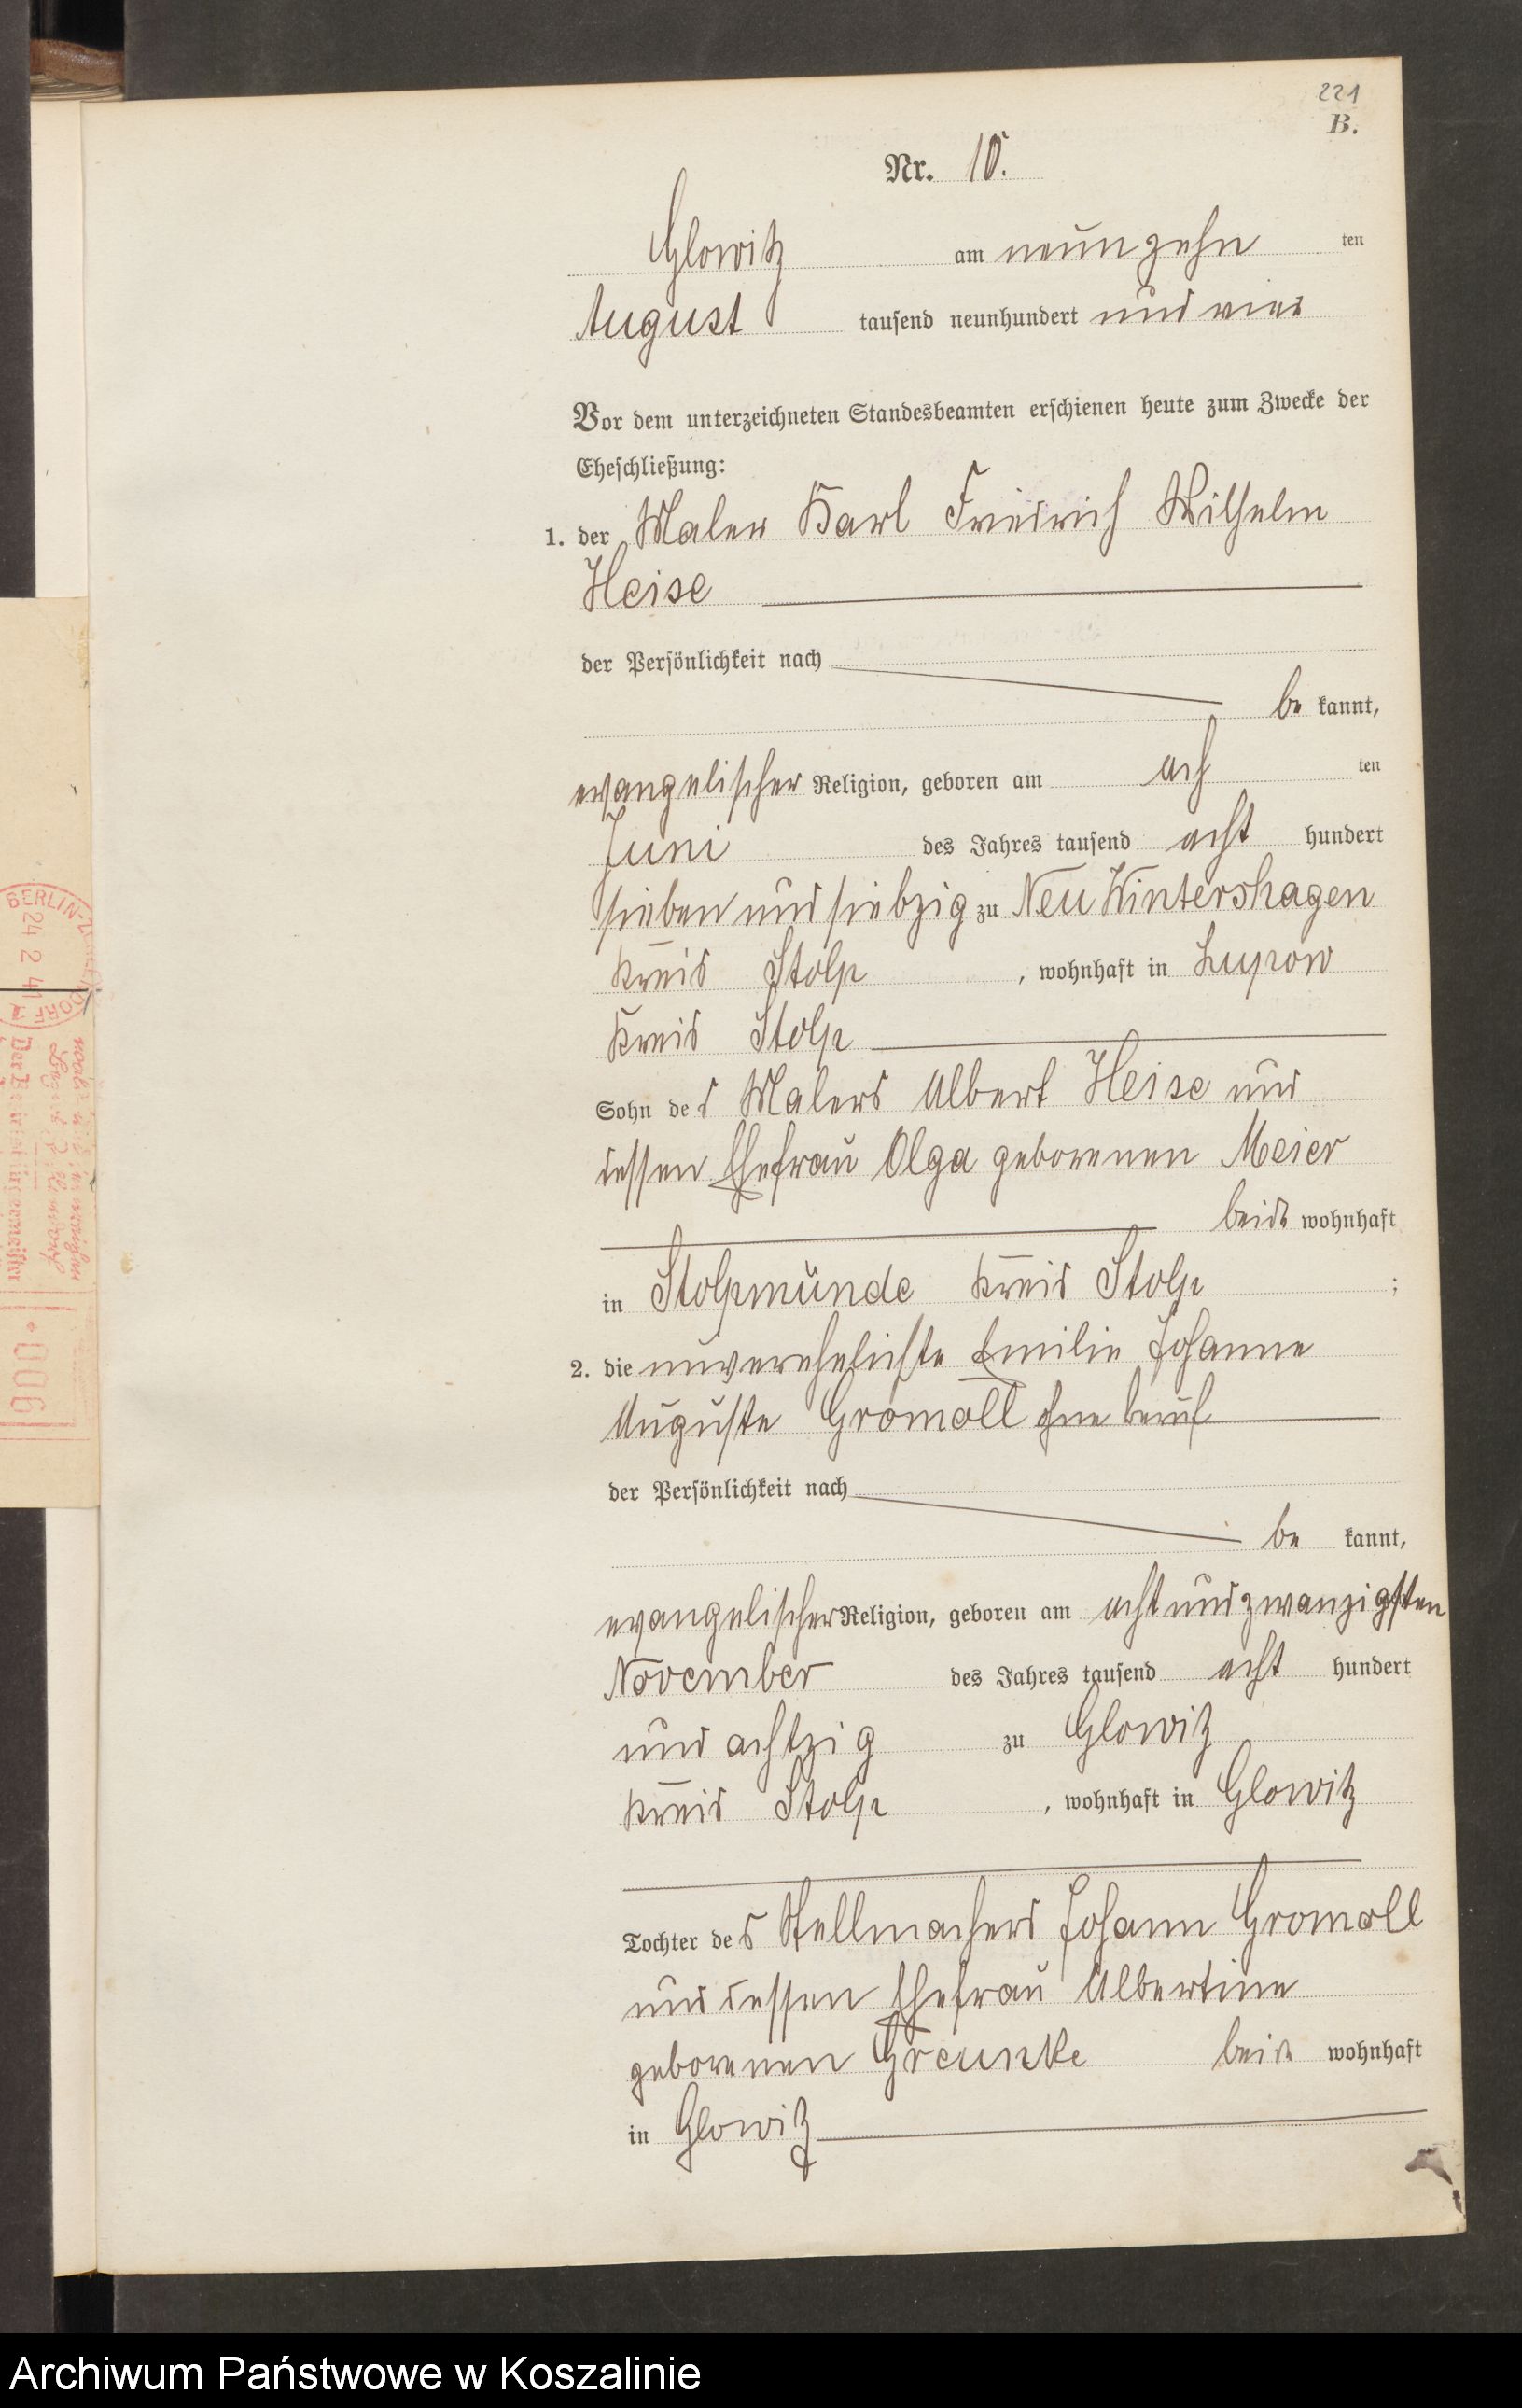 221
B.
Nr. 10.
Glowitz am neunzehn ten
August tausend neunhundert und vier
Vor dem unterzeichneten Standesbeamten erschienen heute zum Zwecke der
Eheschließung:
1. der Maler Karl Friedrich Wilhelm
Heise
der Persönlichkeit nach
be kannt,
evangelischer Religion, geboren am ach ten
Juni des Jahres tausend acht hundert
sieben und siebzig zu Neu Wintershagen
Kreis Stolp, wohnhaft in Lupow
Kreis Stolp
Sohn des Malers Albert Heise und
dessen Ehefrau Olga geborenen Meier
beide wohnhaft
in Stolpmünde Kreis Stolp ;
2. die unverehelichte Emilie Johanne
Auguste Gromoll ohne Beruf
der Persönlichkeit nach
be kannt,
evangelischer Religion, geboren am acht und zwanzigsten
November des Jahres tausend acht hundert
und achtzig zu Glowitz
Kreis Stolp, wohnhaft in Glowitz
Tochter des Stellmachers Johann Gromoll
und dessen Ehefrau Albertine
geborenen Greunke beide wohnhaft
in Glowitz
BERLIN-
24 2 41
DORF
006
Archiwum Państwowe w Koszalinie